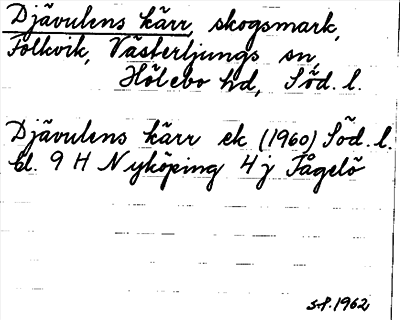 Djävulens kärr, skogsmark,
Folkvik, Västerljungs sn,
Hölebo hd, Söd. l.
Djävulens kärr ek (1960) Söd. l.
bl. 9 H Nyköping 4 j Fågelö
S.P. 1962